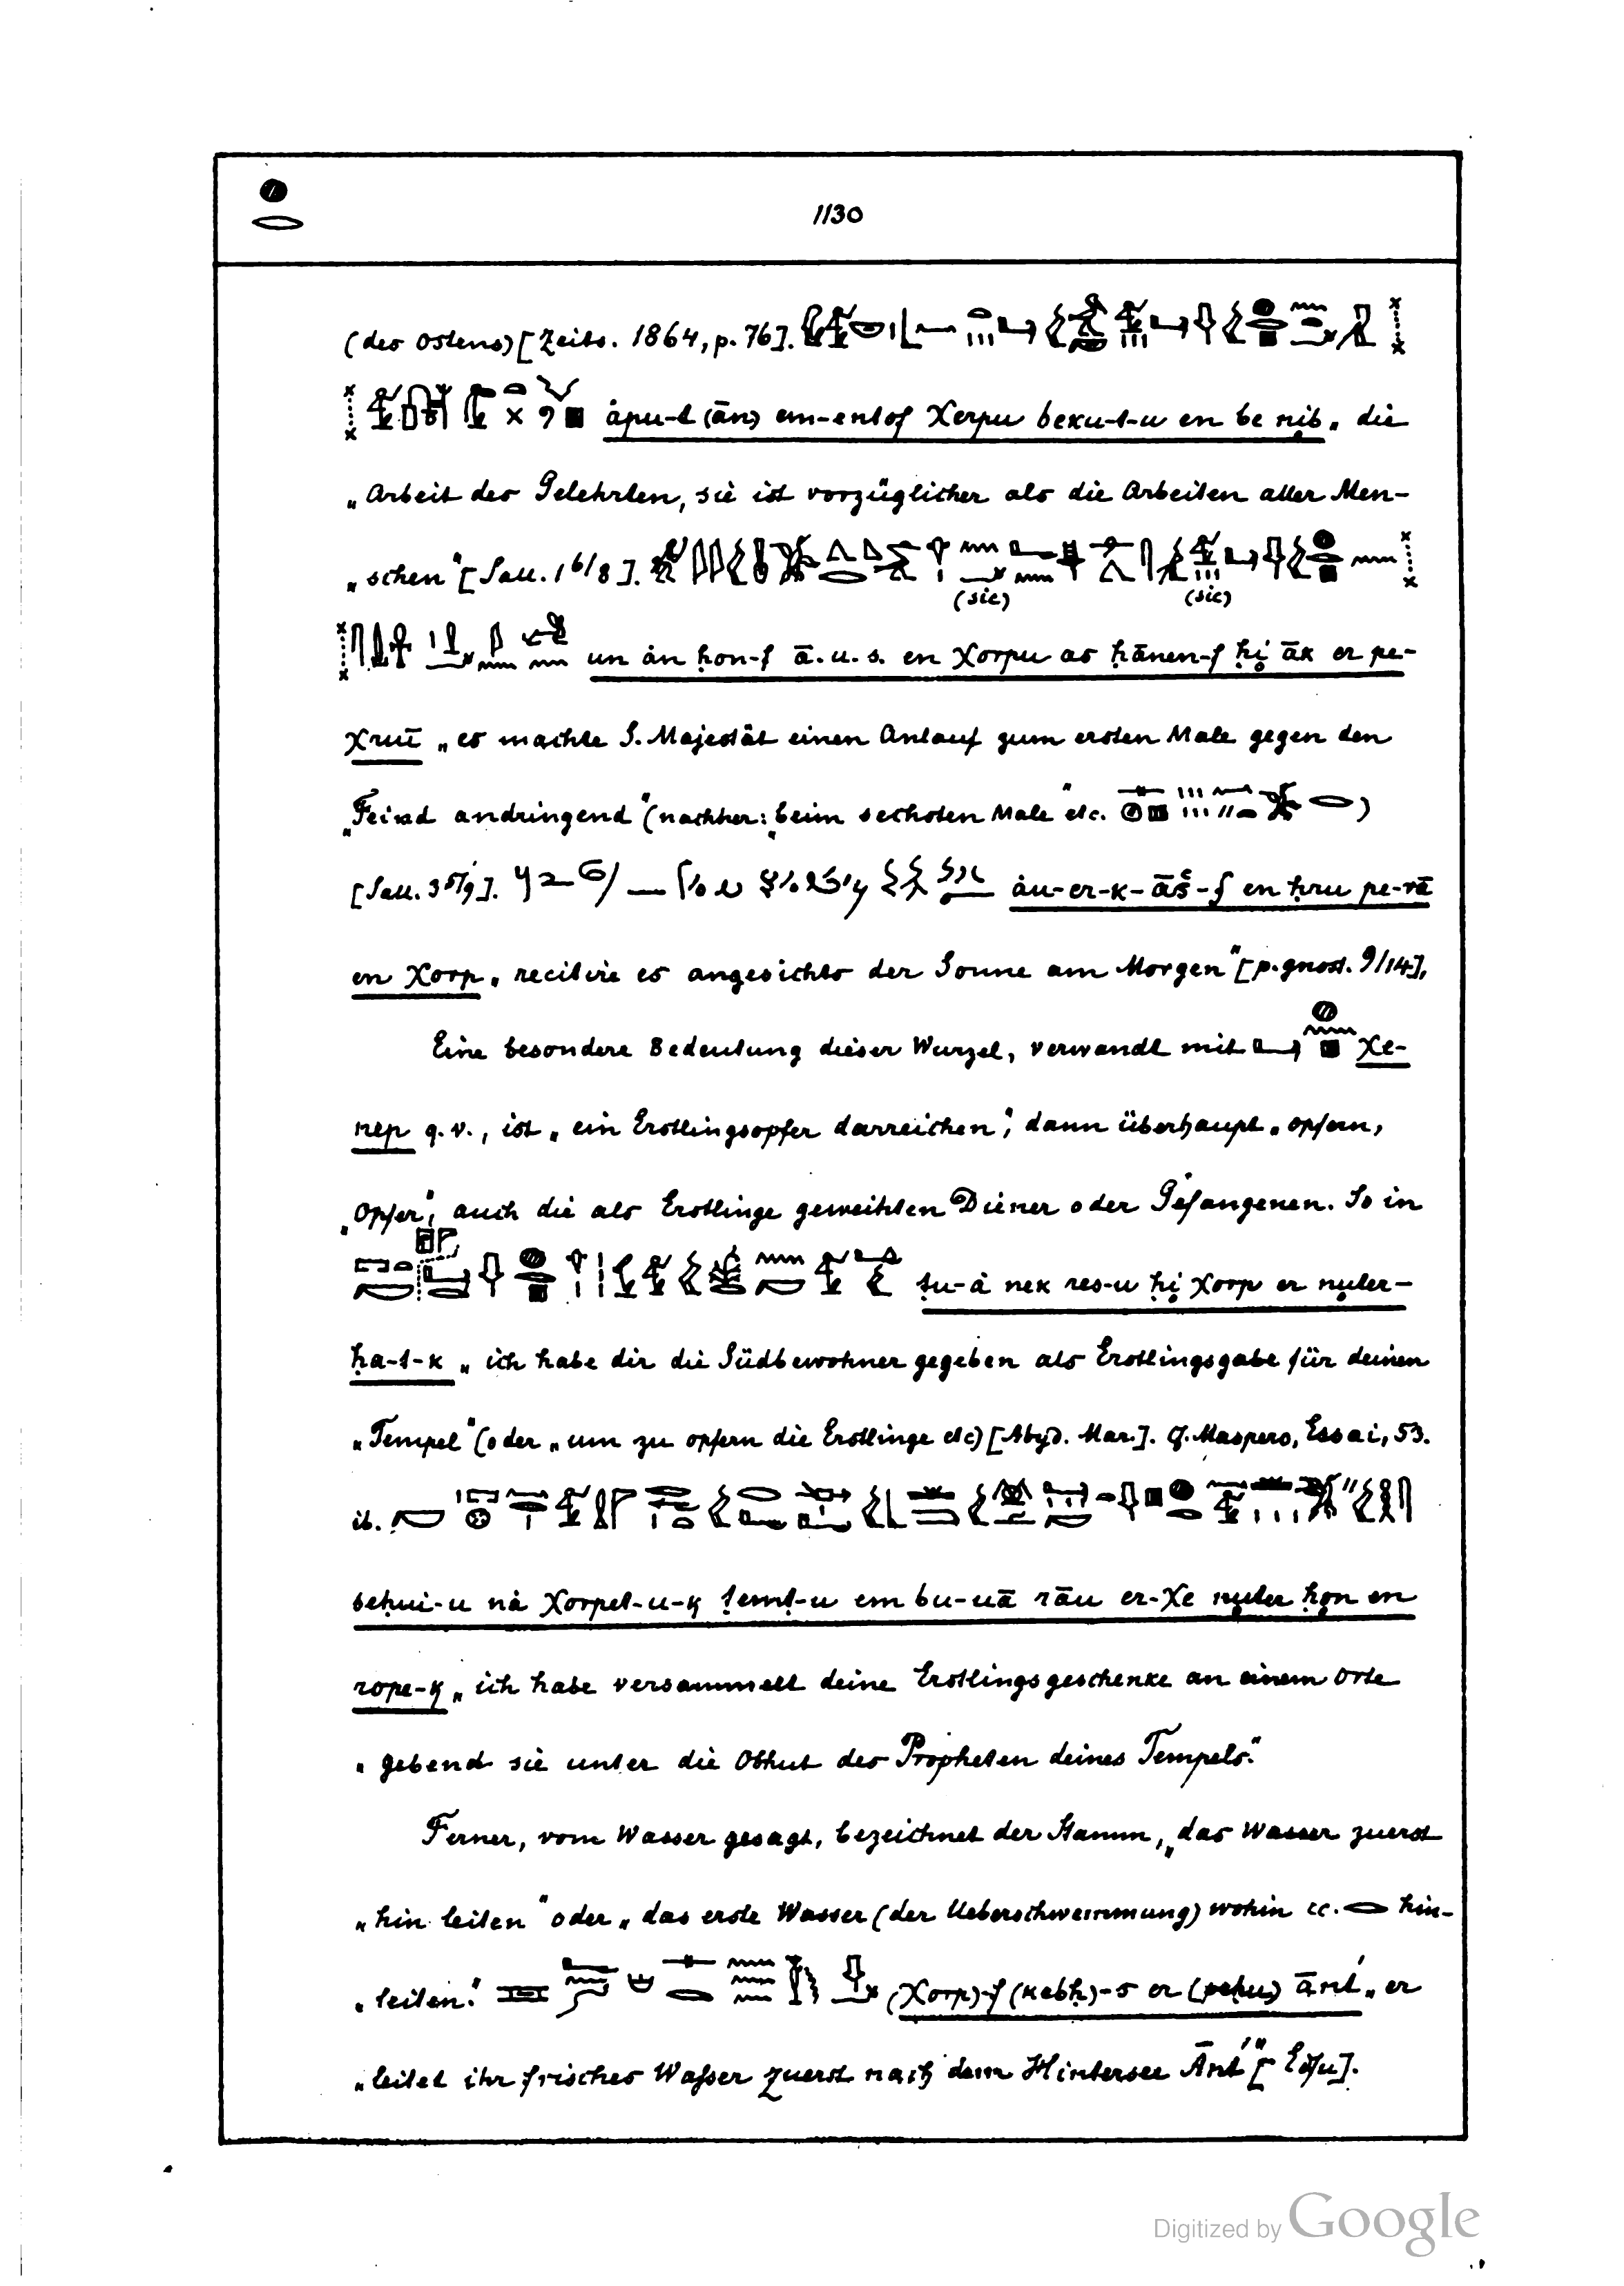 1130
(des Ostens) [Zeits. 1864, p. 76].
ȧpu-t (ān) em-entof χerpu beku-t-u en be nib „ die
„ Arbeit des Gelehrten, sie ist vorzüglicher als die Arbeiten aller Men-
„ schen" [Sall. 1 6/8].
(sic) (sic)
un ȧn ḥon-f ā. u. s. en χorpu as ḥānen-f ḥi āk er pe-
χruï „ es machte S. Majestät einen Anlauf zum ersten Male gegen den
„Feind andringend" (nachher: „beim sechsten Male" etc. )
[Sall. 3 5/9]. ȧu-er-k-āš-f en ḥru pe-rā
en χorp „ recitire es angesichts der Sonne am Morgen" [p. gnost. 9/14],
Eine besondere Bedeutung dieser Wurzel, verwandt mit χe-
nep q. v., ist „ ein Erstlingsopfer darreichen", dann überhaupt „ opfern,
„Opfer", auch die als Erstlinge geweihten Diener oder Gefangenen. So in
ṭu-ȧ nek res-u ḥi χorp er nuter-
ḥa-t-k „ ich habe dir die Südbewohner gegeben als Erstlingsgabe für deinen
„Tempel" (oder „ um zu opfern die Erstlinge etc) [Abyd. Mar.]. Cf. Maspero, Essai, 53.
ib.
seḥui-u nȧ χorpet-u-k ṭemṭ-u em bu-uā rāu er-χe nuter ḥon en
rope-k „ ich habe versammelt deine Erstlingsgeschenke an einem Orte
„ gebend sie unter die Obhut des Propheten deines Tempels."
Ferner, vom Wasser gesagt, bezeichnet der Stamm, „das Wasser zuerst
„ hin leiten" oder „ das erste Wasser (der Ueberschwemmung) wohin cc. hin-
„ leiten." (χorp)-f (kebḥ)-s er (peḥu) ānt' „ er
„ leitet ihr frisches Wasser zuerst nach dem Hintersee Ānt'" [Edfu].
Digitized by Google